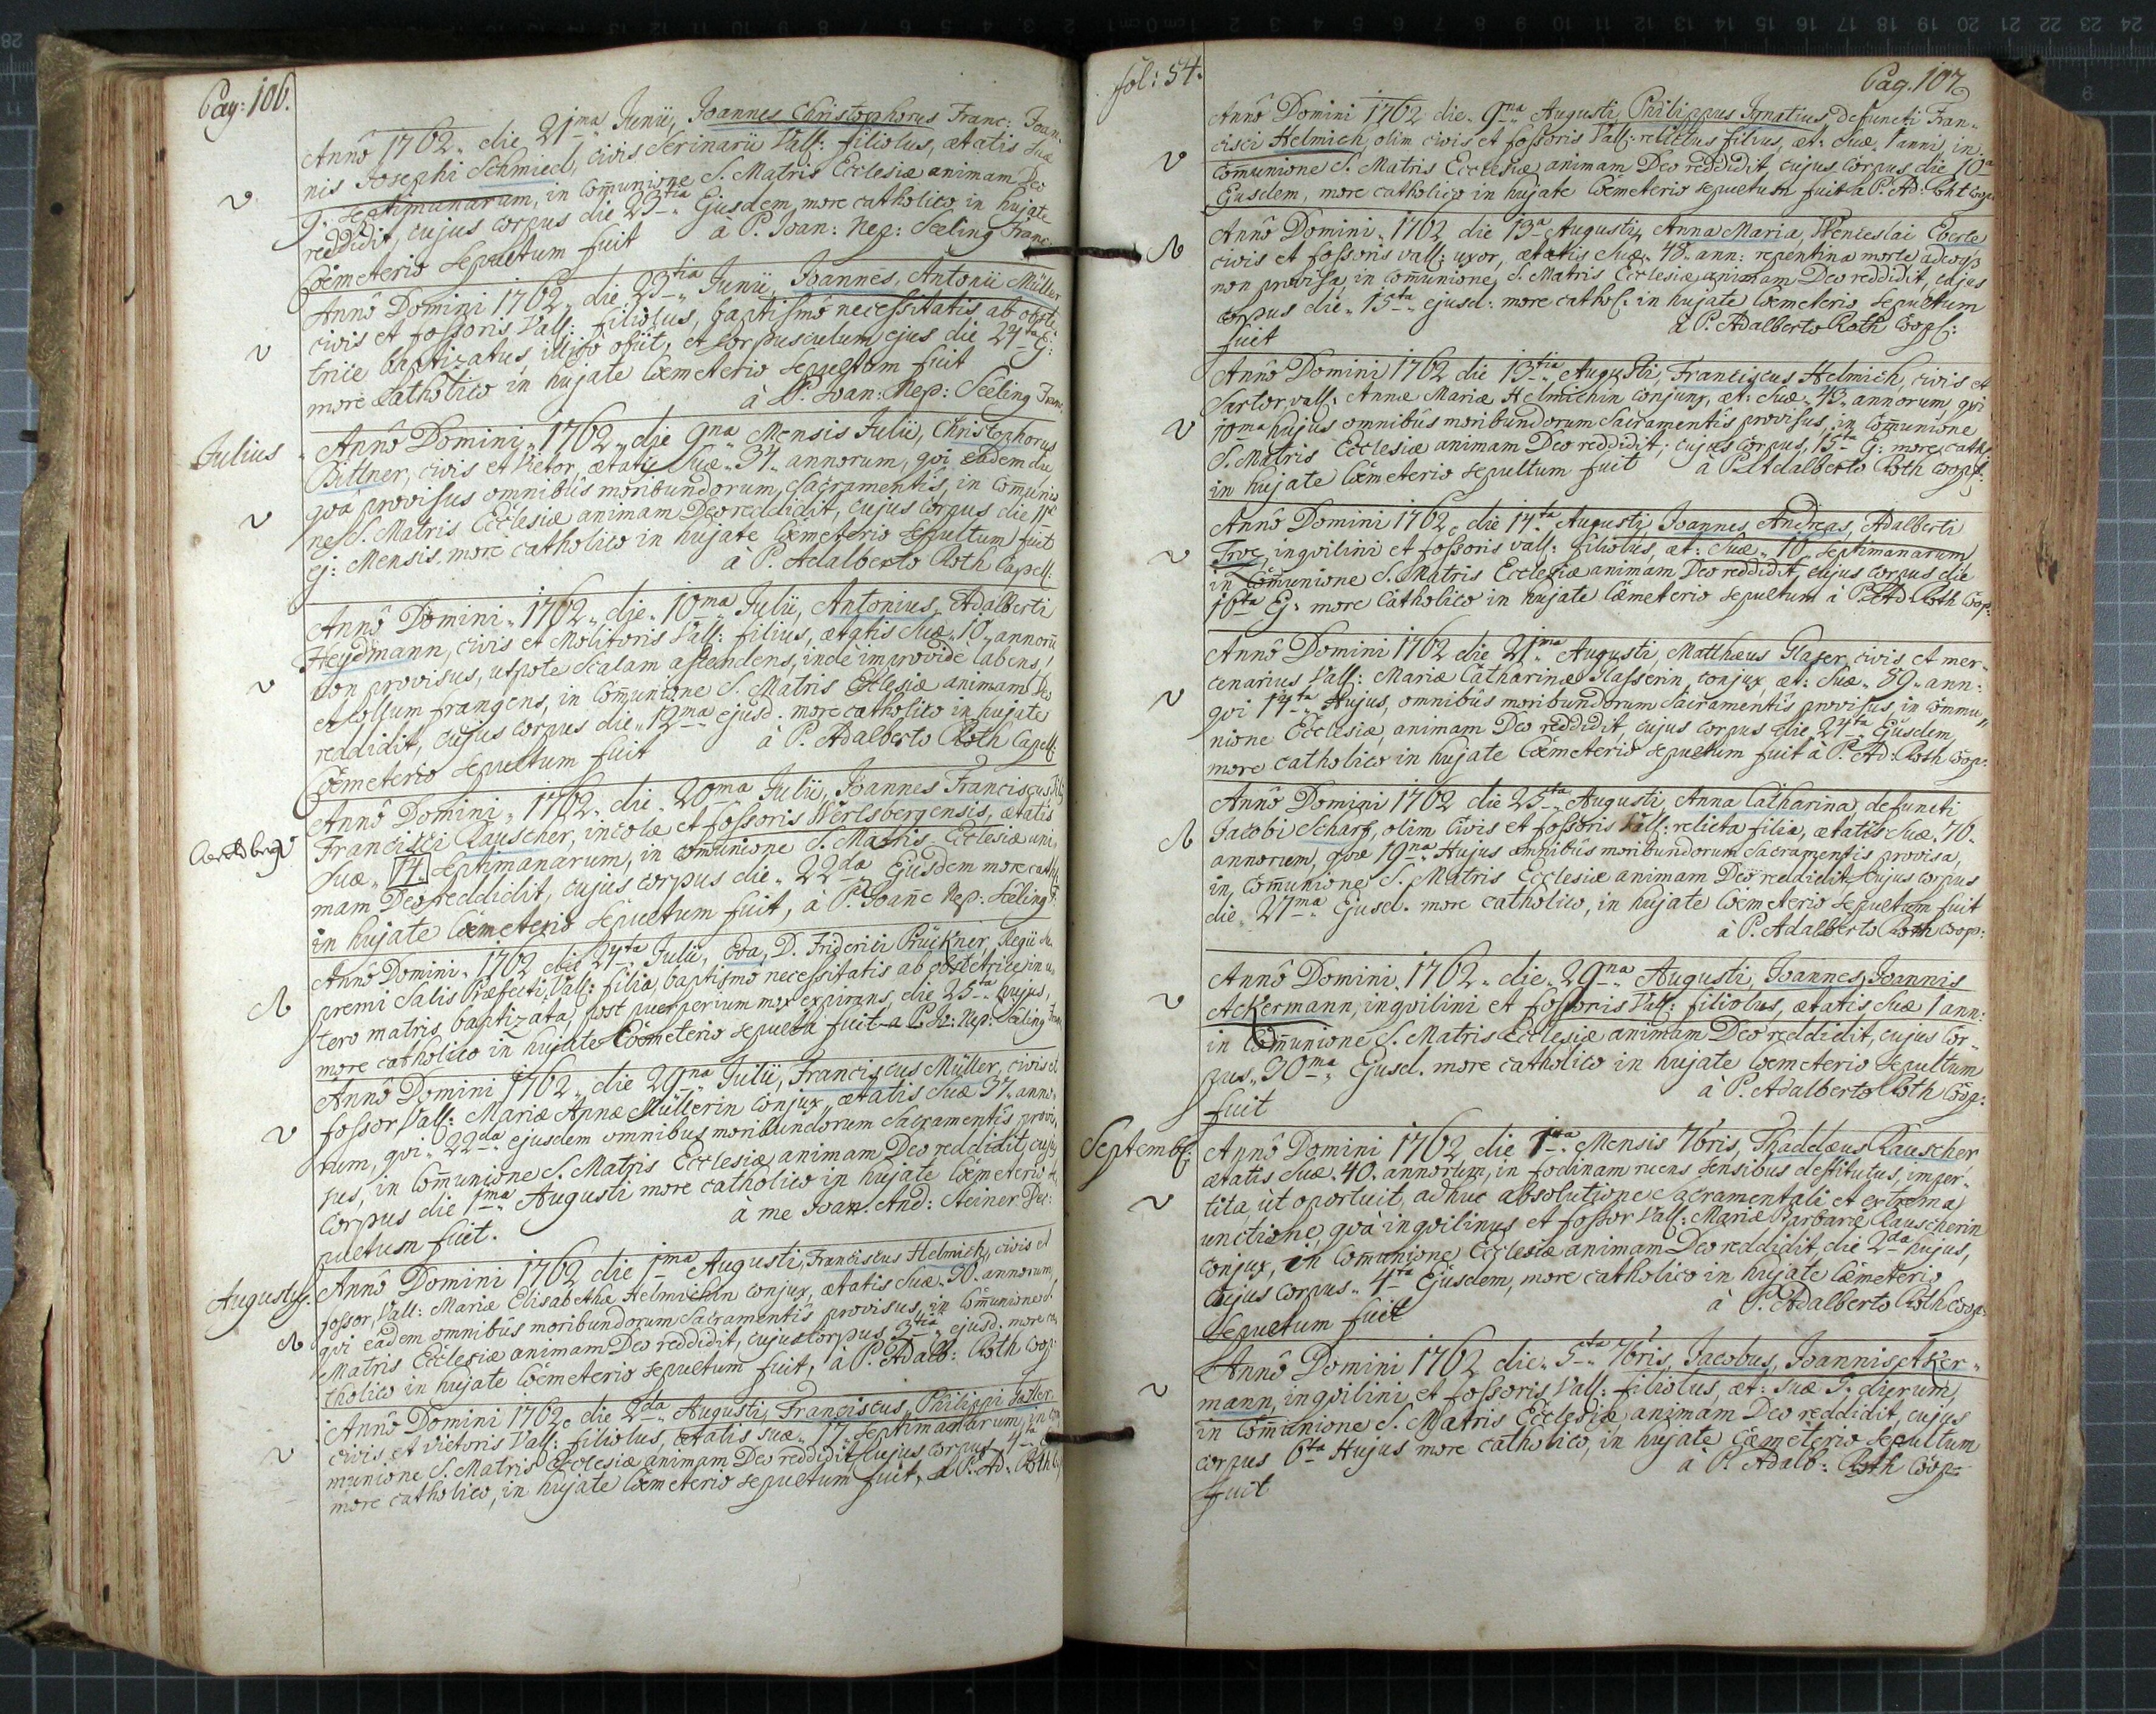 Pag: 106.
Annô 1762. die 21ma Junii, Joannes Christophorus Franc: Joan-
nis Josephi Schmied, civis Scrinarii Vall: filiolus, ætatis Suæ
9. Septimanarum, in Com̄unione S. Matris Ecclesiæ animam Deo
reddidit, cujus corpus die 23tia Ejusdem, more catholico in hujate
Cœmeterio Sepultum fuit à P. Joan: Nep: Seeling Franc:
Annô Domini 1762. die 23tia Junii, Joannes, Antonii Müller
civis et fossoris Vall: filiolus, baptismô necessitatis ab obste-
trice baptizatus, illicò obiit, et Corpusculum ejus die 24ta Ej:
more Catholico in hujate Cœmeterio Sepultum fuit
à P. Joan: Nep: Seeling Franc.
Julius
Annô Domini, 1762. die 9na Mensis Julii, Christophorus
Bittner, civis et Vietor, ætatis Suæ. 37. annorum, qvi eadem die
qvà provisus omnibûs moribundorum Sacramentis, in Com̄unio
ne S. Matris Ecclesiæ animam Deo reddidit, cujus Corpus die 11
ej: Mensis, more catholico in hujate Cœmeterio Sepultum fuit
à P. Adalberto Roth Capell:
Annô Domini. 1762. die. 10ma Julii, Antonius, Adalberti
Heydmann, civis et Molitoris Vall: filius, ætatis Suæ. 10. annorū
non provisus, utpote Scalam ascendens, indè improvidè labens,
et Collum frangens, in Com̄unione S. Matris Ecclesiæ animam Deo
reddidit, cujus corpus die. 12ma ejusd: more catholico in hujate
Cœmeterio Sepultum fuit à P. Adalberto Roth Capell:
Annô Domini. 1762. die. 20ma Julii, Joannes Franciscus, fil:
Francisci Rauscher, incolæ et fossoris Werlsbergensis, ætatis
Suæ. 14. Septimanarum, in com̄unione S. Matris Ecclesiæ ani-
mam Deo reddidit, cujus corpus die. 22da Ejusdem more cath:
in hujate Cœmeterio Sepultum fuit, à P. Joan̄e Nep: Seeling F.
Annô Domini. 1762 die 24ta Julii, Eva, D. Friderici Prückner, Regii Su-
premi Salis Præfecti, Vall: filia, baptismô necessitatis ab obstetrice in u-
tero matris baptizata, post puerperium mox expirans, die 25ta hujus,
more catholico in hujate Cœmeterio sepulta fuit à P. Jo: Nep: Seeling Franc
Annô Domini 1762. die 29na Julii, Franciscus Müller, civis et
fossor Vall: Mariæ Annæ Müllerin Conjux, ætatis Suæ 37. anno-
rum, qvi. 22da ejusdem omnibus moribundorum Sacramentîs provi-
sus, in Com̄unione S. Matris Ecclesiæ animam Deo reddidit, cujus
corpus die 1ma Augusti more catholico in hujate Cœmeterio se-
pultum fuit. à me Joan. And: Steiner Dec:
Augustus.
Annô Domini 1762 die 1ma Augusti, Franciscus Helmich, civis et
fossor, Vall: Mariæ Elisabethæ Helmichin conjux, ætatis Suæ. 30. annorum,
qvi eadem omnibûs moribundorum Sacramentîs provisus, in Com̄unione S.
Matris Ecclesiæ animam Deo reddidit, cujus corpus 3tia ejusd. more ca-
tholico in hujate Cœmeterio Sepultum fuit, à P. Adalb: Roth Coop:
Annô Domini 1762. die 2da Augusti, Franciscus, Philippi
civis et vietoris Vall: filiolus, ætatis suæ. 17. Septimanarum, in com-
munione S. Matris Ecclesiæ animam Deo reddidit, cujus corpus 4ta
more catholico, in hujate Cœmeterio sepultum fuit, à P. Ad: Roth
fol: 54.
Pag. 107
Annô Domini 1762 die. 9na Augusti, Philippus Ignatius, defuncti Fran-
cisci Helmich, olim civis et fossoris Vall: relictus filius, æt: Suæ. 1 anni, in
com̄unione S. Matris Ecclesiæ animam Deo reddidit, cujus Corpus die 10a
Ejusdem, more catholico in hujate Cœmeterio sepultum fuit à P. Ad: Roht Coop
Annô Domini. 1762 die 13a Augusti, Anna Maria, Wenceslai Eberle
civis et fossoris Vall: uxor, ætatis Suæ. 48. ann: repentina morte adeoqz
non provisa, in com̄unione S. Matris Ecclesiæ animam Deo reddidit, cujus
corpus die. 15ta ejusd: more cathol: in hujate Cœmeterio Sepultum
fuit à P. Adalberto Roth Coop:
Annô Domini 1762 die 13tia Augusti, Franciscus Helmich, civis et
Sartor, Vall: Annæ Mariæ Helmichin conjunx, æt: Suæ. 43. annorum, qvi
10ma hujus omnibûs moribundorum Sacramentîs provisus, in Com̄unione
S. Matris Ecclesiæ animam Deo reddidit, cujus corpus, 15ta Ej: more cathol:
in hujate Cœmeterio sepultum fuit à P. Adalberto Roth Coop:
Annô Domini 1762. die 14ta Augusti Joannes, Andreas, Adalberti
inqvilini et fossoris Vall: filiolus, æt: Suæ. 10. Septimanarum
in Com̄unione S. Matris Ecclesiæ animam Deo reddidit, cujus corpus die
16ta Ej: more Catholico in hujate Cœmeterio sepultum à P. Ad Roth Coop:
Annô Domini 1762 die 21ma Augusti, Matthæus Glaser, civis et mer-
cenarius Vall: Mariæ Catharinæ Glasserin, conjux, æt: Suæ. 89. ann:
qvi 14ta Hujus, omnibûs moribundorum Sacramentîs provisus, in Commu-
nione Ecclesiæ, animam Deo reddidit, cujus corpus die 24ta Ejusdem,
more catholico in hujate Cœmeterio sepultum fuit à P. Ad: Roth Coop:
Annô Domini 1762 die 25ta Augusti, Anna Catharina, defuncti
Jacobi Scharf, olim civis et fossoris Vall: relicta filia, ætatis Suæ. 76.
annorum, qvæ 19na Hujus omnibûs moribundorum Sacramentîs provisa,
in com̄unione S. Matris Ecclesiæ animam Deo reddidit, cujus corpus
die. 27ma Ejusd. more catholico, in hujate Cœmeterio Sepultum fuit
à P. Adalberto Roth Coop:
Annô Domini. 1762. die. 29na Augusti, Joannes, Joannis
Ackermann, inqvilini et fossoris Vall: filiolus, ætatis Suæ 1 ann:
in Com̄unione S. Matris Ecclesiæ animam Deo reddidit, cujus Cor-
pus. 30ma Ejusd. more catholico in hujate Cœmeterio Sepultum
fuit à P. Adalberto Roth Coop:
Septemb:
Annô Domini 1762 die 1ma Mensis 7bris, Thaddæus Rauscher
ætatis Suæ. 40. annorum, in fodinam ruens sensibus destitutus, imper-
tita, ùt oportuit, adhuc absolutione Sacramentali et extrema
unctione, qvà inqvilinus et fossor Vall: Mariæ Barbaræ Rauscherin
conjux, in Com̄unione Ecclesiæ animam Deo reddidit, die 2da hujus,
cujus corpus. 4ta Ejusdem, more catholico in hujate Cœmeterio
Sepultum fuit à P. Adalberto Roth Coop:
Annô Domini 1762 die. 5ta 7bris, Jacobus, Joannis Aker-
mann, inqvilini et fossoris Vall: filiolus, æt: suæ 9. dierum,
in Com̄unione S. Matris Ecclesiæ animam Deo reddidit, cujus
corpus 6ta Hujus more catholico, in hujate Cæmeterio Sepultum
fuit à P. Adalb: Roth Coop: